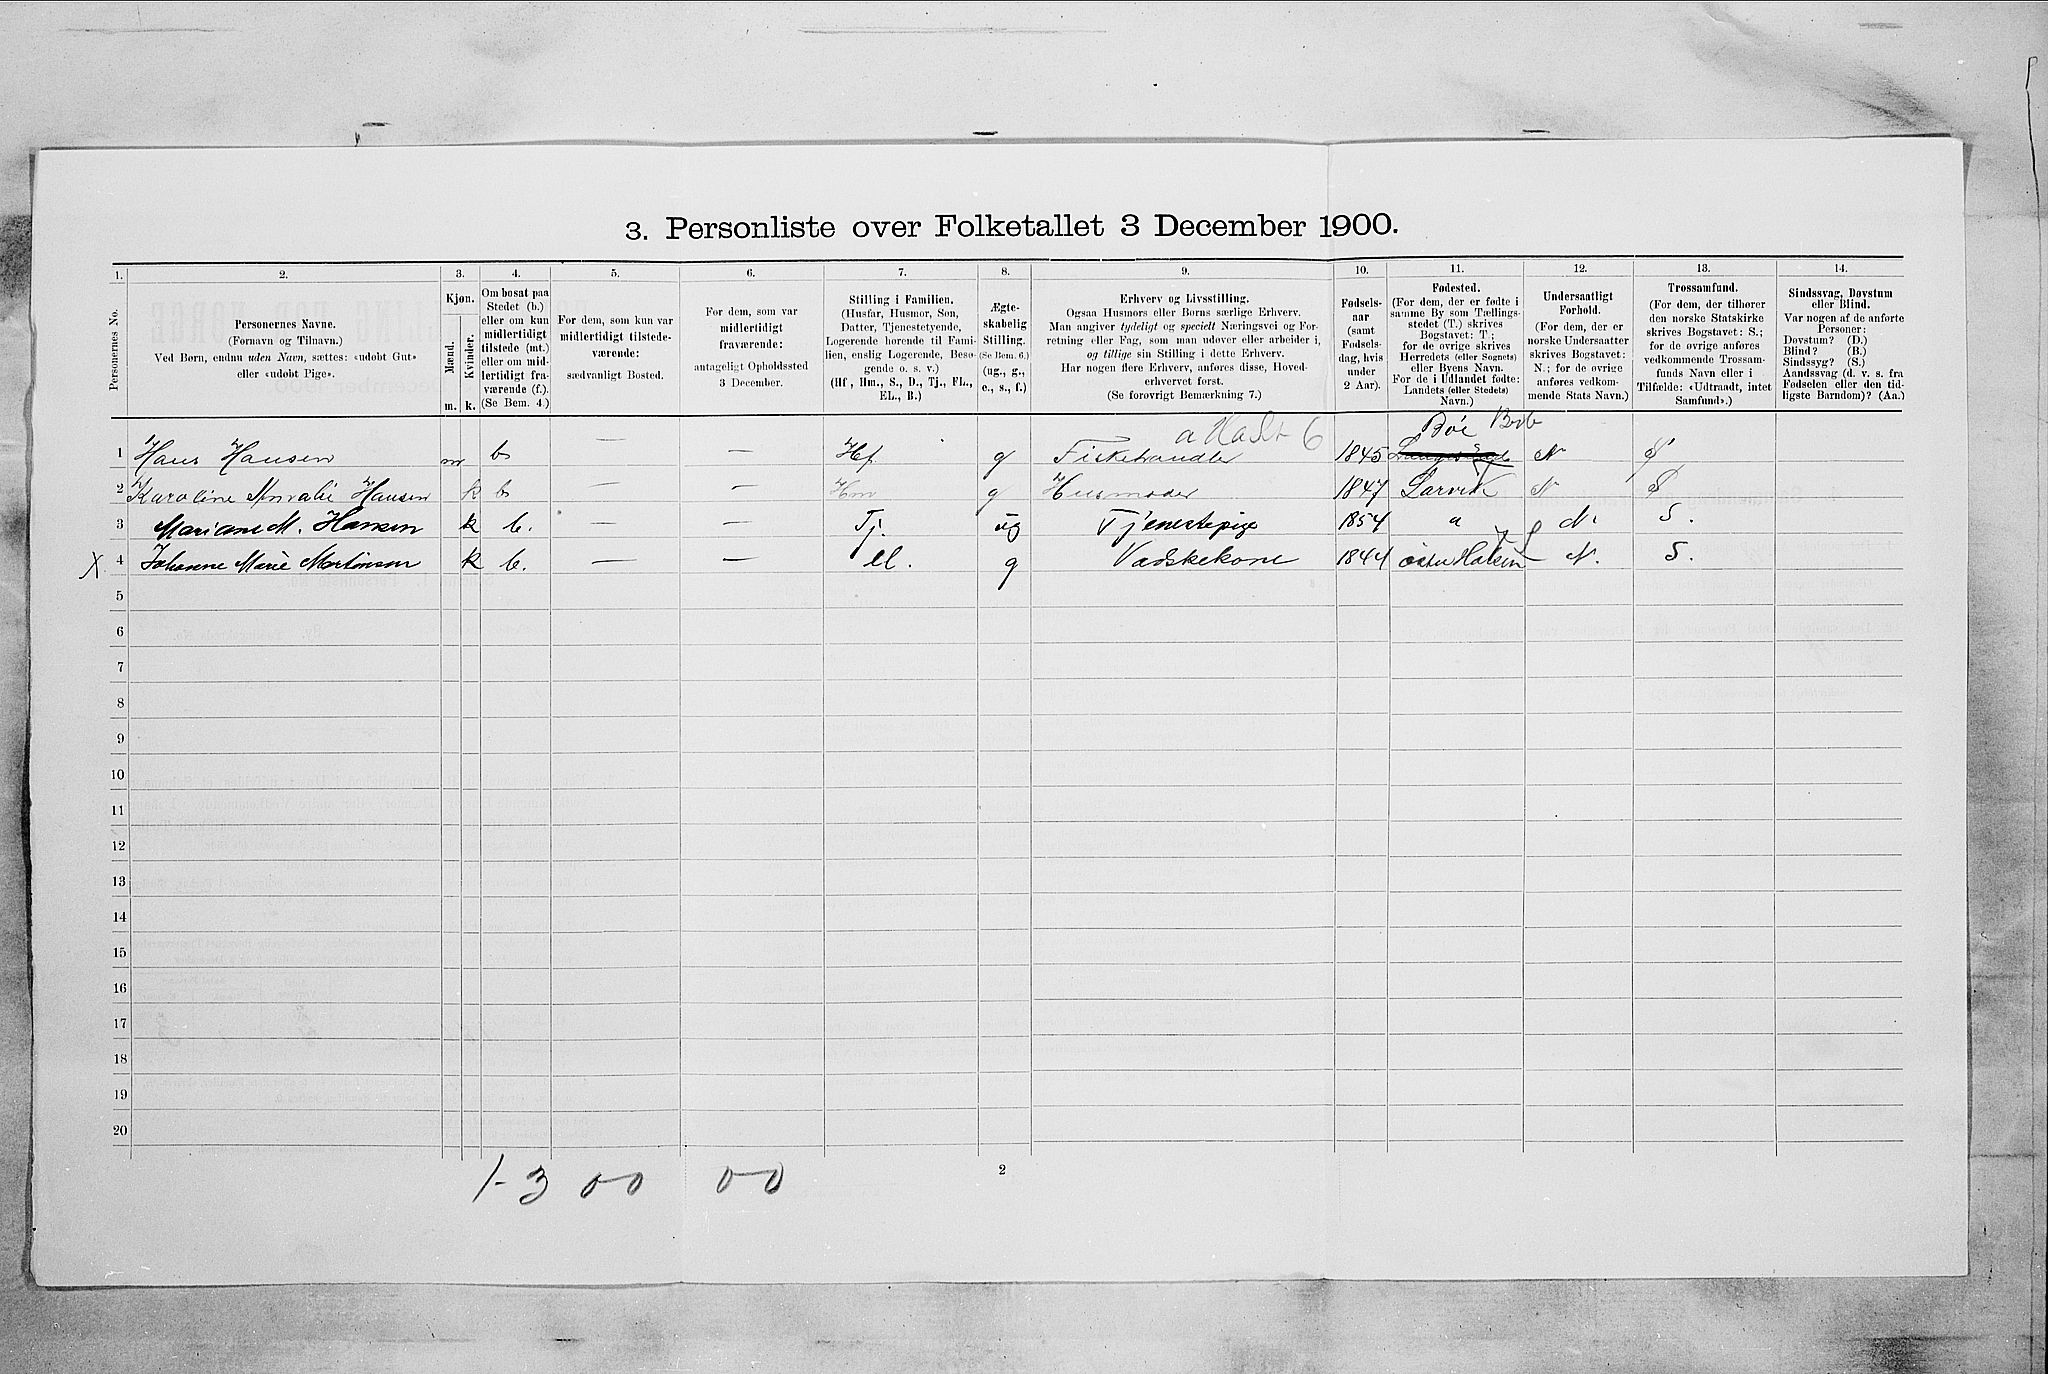 3. Personliste over Folketallet 3 December 1900.
1. 2. 3. 4. 5. 6. 7. 8. 9. 10. 11. 12. 13. 14.
Personernes No.
Personernes Navne.
(Fornavn og Tilnavn.)
Ved Børn, endnu uden Navn, sættes: «udøbt Gut»
eller «udøbt Pige».
Kjøn.
Mænd.
Kvinder.
m. k.
Om bosat paa
Stedet (b.)
eller om kun
midlertidigt
tilstede (mt.)
eller om mid-
lertidigt fra-
værende (f.).
(Se Bem. 4.)
For dem, som kun var
midlertidigt tilstede-
værende:
sædvanligt Bosted.
For dem, som var
midlertidigt
fraværende:
antageligt Opholdssted
3 December.
Stilling i Familien.
(Husfar, Husmor, Søn,
Datter, Tjenestetyende,
Logerende hørende til Fami-
lien, enslig Logerende, Besø-
gende o. s. v.)
(Hf, Hm., S., D., Tj., FL.,
EL., B.)
Ægte-
skabelig
Stilling.
(Se Bem. 6.)
(ug., g.,
e., s., f.)
Erhverv og Livsstilling.
Ogsaa Husmors eller Børns særlige Erhverv.
Man angiver tydeligt og specielt Næringsvei og For-
retning eller Fag, som man udøver eller arbeider i,
og tillige sin Stilling i dette Erhverv.
Har nogen flere Erhverv, anføres disse, Hoved-
erhvervet først.
(Se forøvrigt Bemærkning 7.)
Fødsels-
aar
(samt
Fødsels-
dag, hvis
under
2 Aar).
Fødested.
(For dem, der er fødte i
samme By som Tællings-
stedet (T.) skrives
Bogstavet: T;
for de øvrige skrives
Herredets (eller Sognets)
eller Byens Navn.
For de i Udlandet fødte:
Landets (eller Stedets)
Navn.)
Undersaatligt
Forhold.
(For dem, der er
norske Undersaatter
skrives Bogstavet:
N.; for de øvrige
anføres vedkom-
mende Stats Navn.)
Trossamfund.
(For dem, der tilhører
den norske Statskirke
skrives Bogstavet: S.;
for de øvrige anføres
vedkommende Trossam-
funds Navn eller i
Tilfælde: «Udtraadt, intet
Samfund».)
Sindssvag, Døvstum
eller Blind.
Var nogen af de anførte
Personer:
Døvstum? (D.)
Blind? (B.)
Sindssyg? (S.)
Aandssvag (d. v. s. fra
Fødselen eller den tid-
ligste Barndom)? (Aa.)
6 Bøe
1 Hans Hansen m b — — Hf g Fiskehandler 1845 N S
2 Karoline Amalie Hansen k b — — Hm g Husmoder 1847 Larvik N S
3 Mariane M. Hansen k b. — — Tj. ug Tjenestepige 1854 N. S.
X 4 Johanne Marie Martinsen k b. — — el. g Vadskekone 1844 N. S.
5
6
7
8
9
10
11
12
13
14
15
16
17
18
19
20
1-3 0-0 0-0
2